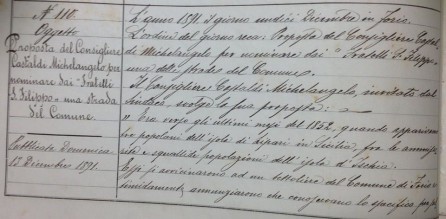 N. 110.
Oggetto
Proposta del Consigliere
Castaldi Michelangelo, per
nominare dai "Fratelli
S. Filippo" una strada
del Comune.
Pubblicata Domenica
13 Dicembre 1891.
L'anno 1891, il giorno undici Dicembre in Forio.
L'ordine del giorno reca: Proposta del Consigliere Castaldi
Michelangelo per nominare dai "Fratelli S. Filippo"
una delle strade del Comune.
Il Consigliere Castaldi Michelangelo, invitato dal
Sindaco, svolge la sua proposta:
" Era verso gli ultimi mesi del 1852, quando apparivano
popolani dell'isola di Lipari in Sicilia, fra le
e squallide popolazioni dell'isola d'Ischia.
Essi si avvicinarono ad un bettoliere del Comune di Forio e
timidamente annunziarono che conoscevano lo specifico per